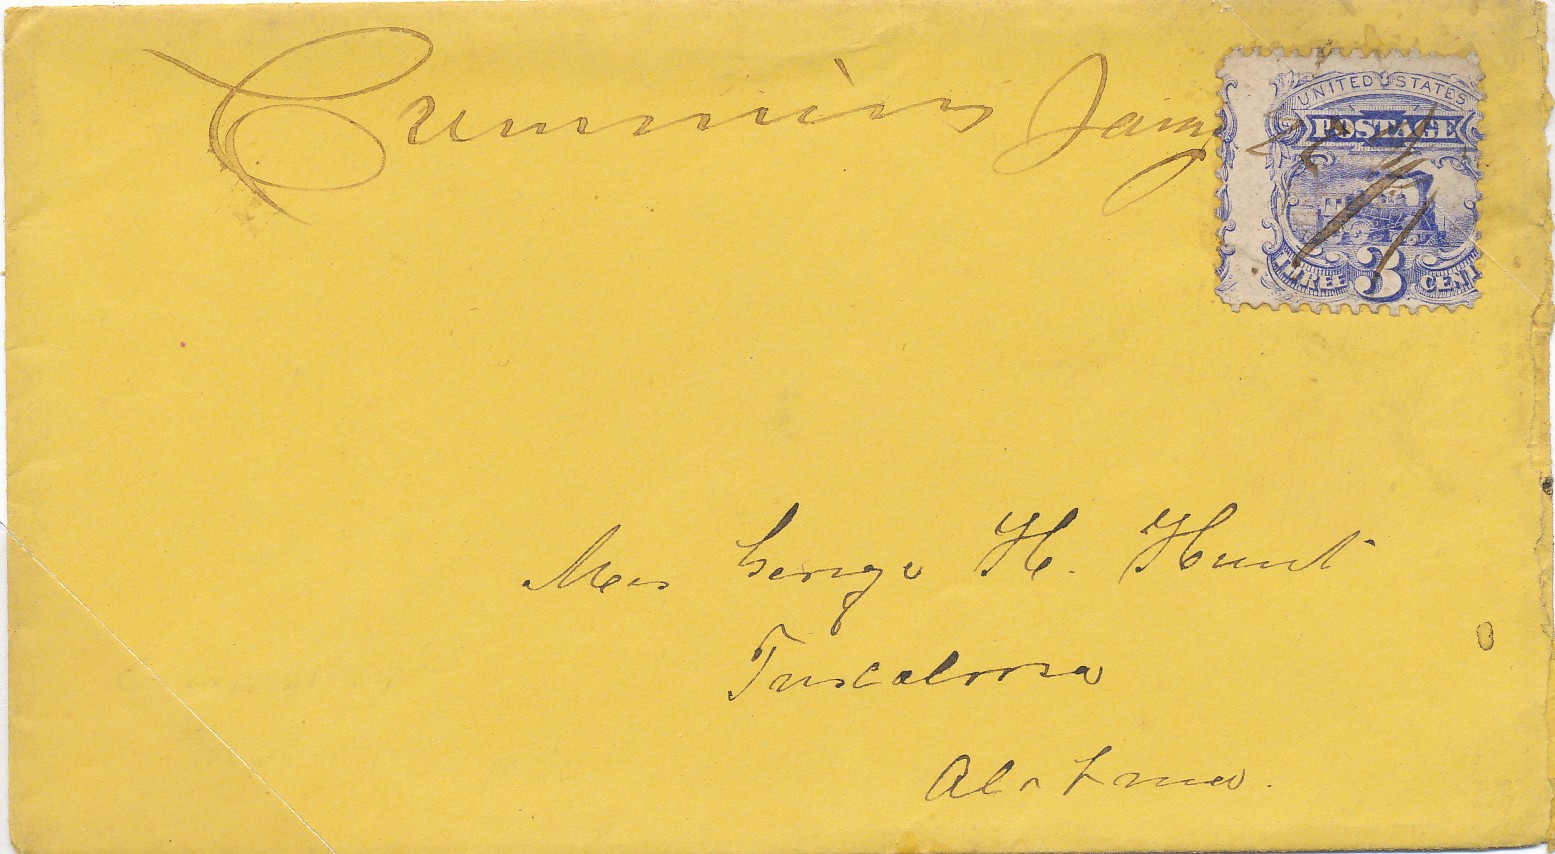 Cummins
UNITED STATES
POSTAGE
THREE 3 CENT
Mrs George H. Hunt
Tuscaloosa
Alabama.